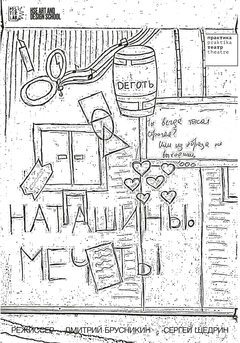 HSE ART AND
DESIGN SCHOOL
практика
praktika
театр
theatre
ДЕГОТЬ
Ты всегда такая
строгая?
Или из образа не
выходишь
НАТАШИНЫ
МЕЧТЫ
РЕЖИССЕР ДМИТРИЙ БРУСНИКИН, СЕРГЕЙ ЩЕДРИН